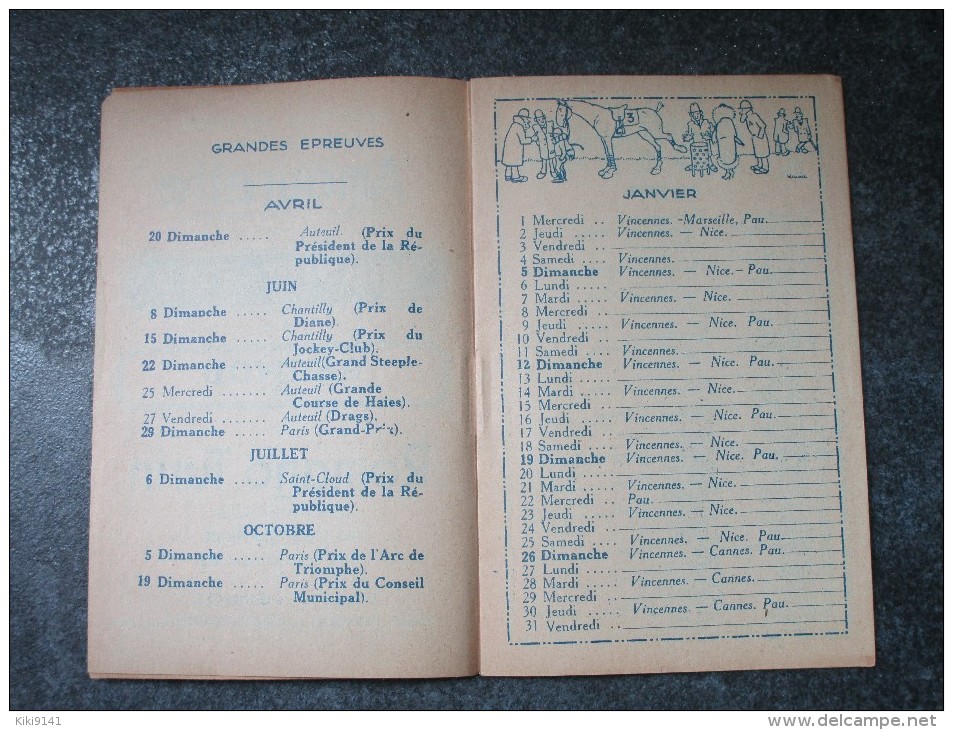 GRANDES EPREUVES
AVRIL
20 Dimanche ..... Auteuil. (Prix du
Président de la Ré-
publique).
JUIN
8 Dimanche ..... Chantilly (Prix de
Diane).
15 Dimanche ..... Chantilly (Prix du
Jockey-Club).
22 Dimanche ..... Auteuil (Grand Steeple-
Chasse).
25 Mercredi ....... Auteuil (Grande
Course de Haies).
27 Vendredi ....... Auteuil (Drags).
29 Dimanche ...... Paris (Grand-Prix).
JUILLET
6 Dimanche ..... Saint-Cloud (Prix du
Président de la Ré-
publique).
OCTOBRE
5 Dimanche ..... Paris (Prix de l'Arc de
Triomphe).
19 Dimanche ..... Paris (Prix du Conseil
Municipal).
3
JANVIER
1 Mercredi .. Vincennes. -Marseille, Pau.
2 Jeudi ..... Vincennes. — Nice.
3 Vendredi ..
4 Samedi .... Vincennes.
5 Dimanche Vincennes. — Nice. - Pau.
6 Lundi .....
7 Mardi .... Vincennes. — Nice.
8 Mercredi ..
9 Jeudi ..... Vincennes. — Nice. Pau.
10 Vendredi ..
11 Samedi .... Vincennes.
12 Dimanche Vincennes. — Nice. Pau.
13 Lundi .....
14 Mardi .... Vincennes. — Nice.
15 Mercredi ..
16 Jeudi ..... Vincennes. — Nice. Pau.
17 Vendredi ..
18 Samedi .... Vincennes. — Nice.
19 Dimanche Vincennes. — Nice. Pau.
20 Lundi .....
21 Mardi .... Vincennes. — Nice.
22 Mercredi .. Pau.
23 Jeudi ..... Vincennes. — Nice.
24 Vendredi ..
25 Samedi .... Vincennes. — Nice. Pau.
26 Dimanche Vincennes. — Cannes. Pau.
27 Lundi .....
28 Mardi .... Vincennes. — Cannes.
29 Mercredi ..
30 Jeudi ..... Vincennes. — Cannes. Pau.
31 Vendredi ..
Kiki9141
www.delcampe.net